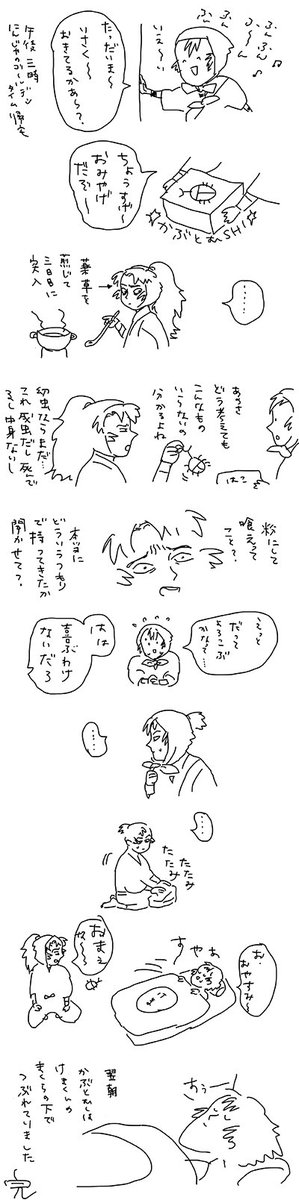 ふんふんふふ~ん♪
いえ~い
たっだいま~
いさく~
おきてるかあ~?
午後三時
ちょうすげ~
おみやげ
だぞ~
☆かぶとむSHI☆
……
薬草を
煎じて
三日目に
突入
あのさ
どう考えても
こんなもの
いらないの
分かるよね
はこを
幼虫ならまだ…
これ成虫だし死んで
るし中身ないし
粉にして
喰えって
こと?
本当に
どういうつもり
で持ってきたか
聞かせてっ?
えっと
だって
よろこぶ
かなって…
はは
喜ぶわけ
ないだろ
……
……
たたみ
たたみ
お、
おやすみ~
すやぁ
おまえ
や~
ちぅー
翌朝
かぶとむしは
けまくんの
まくらの下で
つぶれてました
完